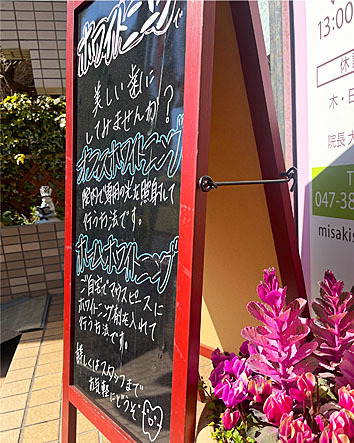 ホワイトニングで
美しい歯に
してみませんか?
オフィスホワイトニング
院内で専用の光を照射して
行う方法です。
ホームホワイトニング
ご自宅でマウスピースに
ホワイトニング剤を入れて
行う方法です。
詳しくはスタッフまで
お気軽にどうぞ
13:00
休診
木・日
院長 大
T
047-38
misakis